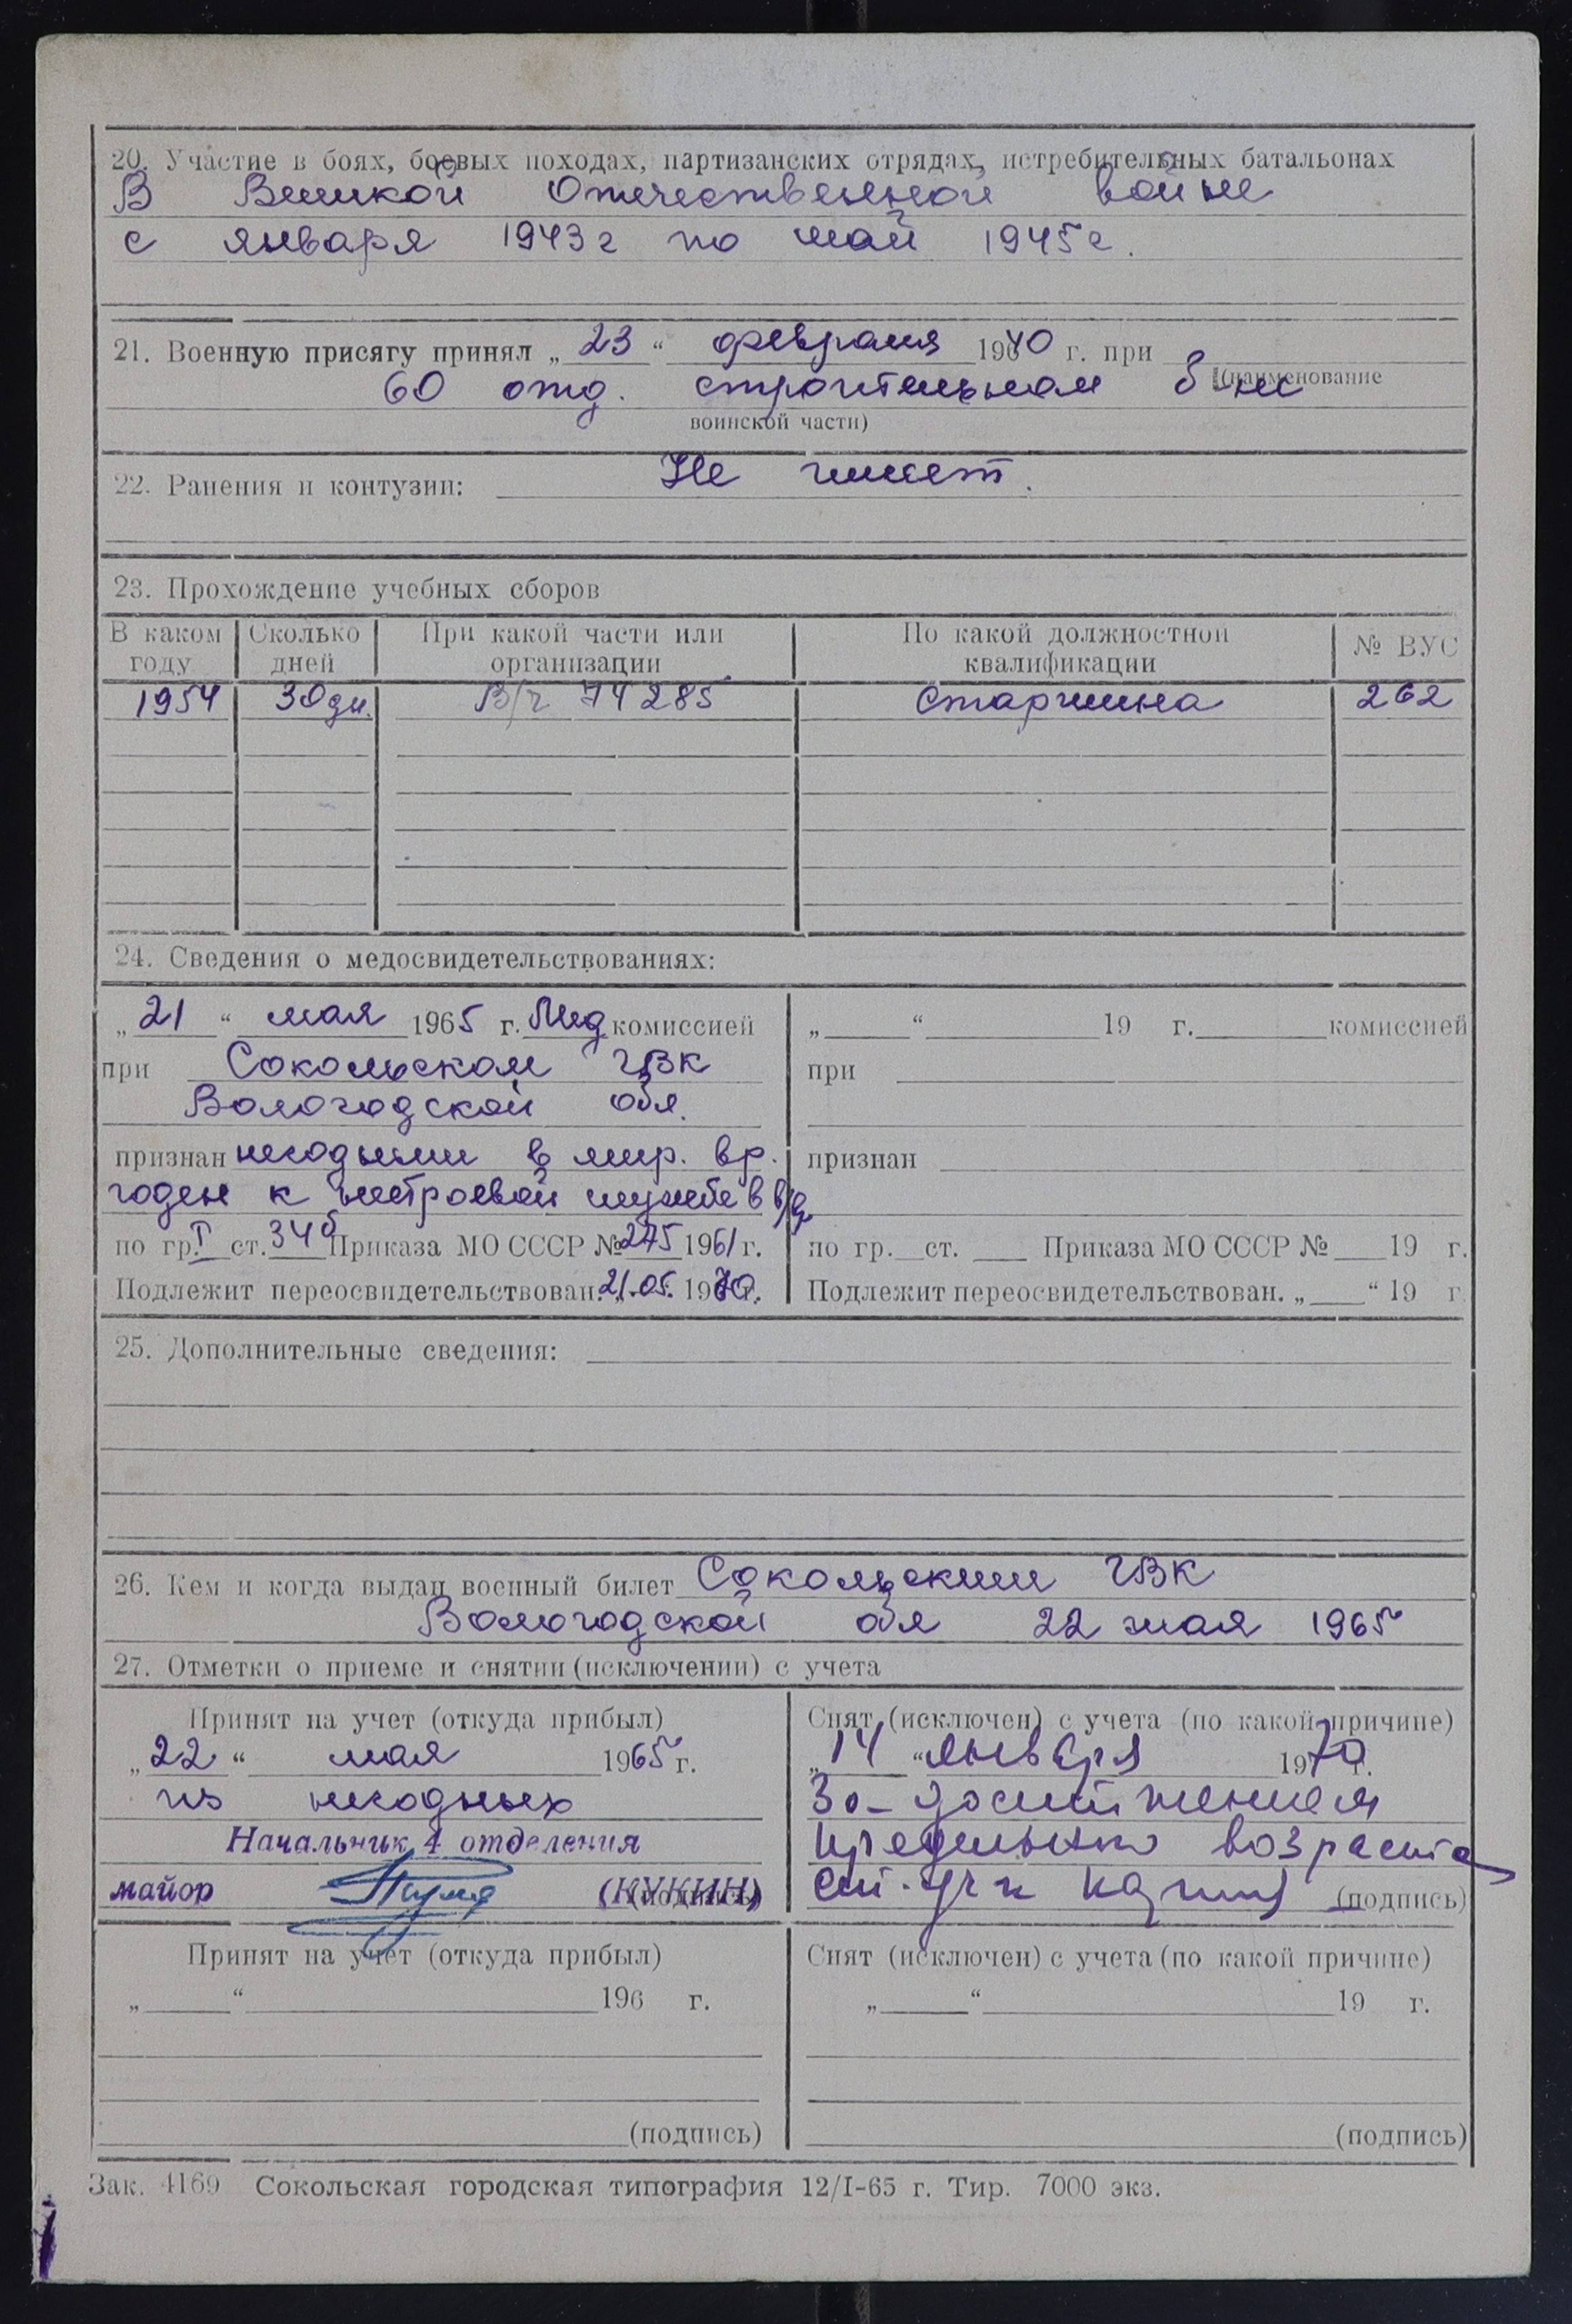 20. Участие в боях, боевых походах, партизанских отрядах, истребительных батальонах
В Великой Отечественной войне
с января 1943г по май 1945г.
21. Военную присягу принял „ 23 “ февраля 1940 г. при
60 отд. строительном б-не (наименование
воинской части)
22. Ранения и контузии: Не имеет.
23. Прохождение учебных сборов
В каком году | Сколько дней | При какой части или организации | По какой должностной квалификации | № ВУС
1954 | 30 дн. | В/ч 74285 | Старшина | 262
24. Сведения о медосвидетельствованиях:
„ 21 “ мая 1965 г. Мед комиссией
при Сокольском ГВК
Вологодской обл.
признан негодным в мир. вр.
годен к нестроевой службе в в/в
по гр. I ст. 34б Приказа МО СССР № 275 1961 г.
Подлежит переосвидетельствован. 21.05. 1970 г.
„ “ 19 г. комиссией
при
признан
по гр. ст. Приказа МО СССР № 19 г.
Подлежит переосвидетельствован. „ “ 19 г.
25. Дополнительные сведения:
26. Кем и когда выдан военный билет Сокольским ГВК
Вологодской обл 22 мая 1965
27. Отметки о приеме и снятии (исключении) с учета
Принят на учет (откуда прибыл)
„ 22 “ мая 1965 г.
из негодных
Начальник 4 отделения
майор (КУКИН) (подпись)
Снят (исключен) с учета (по какой причине)
„ 14 “ января 1970 г.
За-достижением
предельного возраста
(подпись)
Принят на учет (откуда прибыл)
„ “ 196 г.
(подпись)
Снят (исключен) с учета (по какой причине)
„ “ 19 г.
(подпись)
Зак. 4169 Сокольская городская типография 12/I-65 г. Тир. 7000 экз.